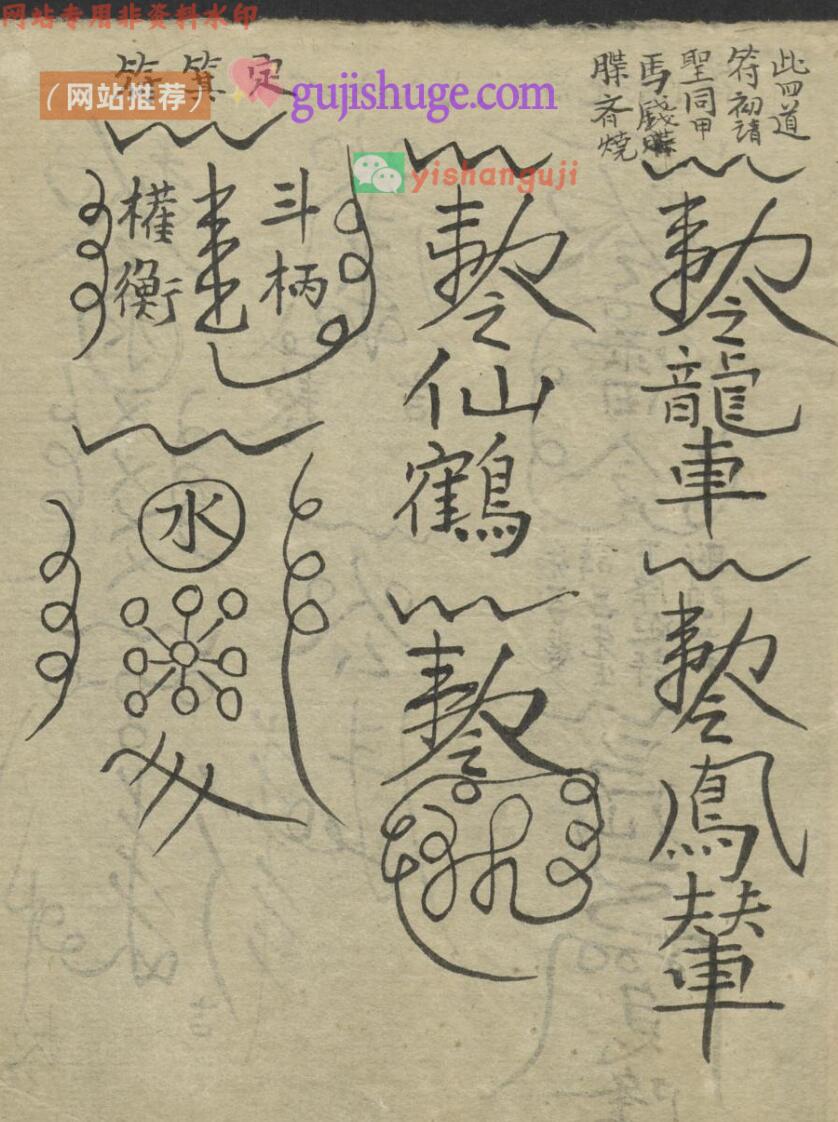 网站专用非资料水印
（网站推荐）
gujishuge.com
yishanguji
此四道
符初請
聖同甲
馬錢
牒齊燒
敕令龍車
敕令鳳輦
敕令仙鶴
敕令
定箕符
斗柄
權衡
水